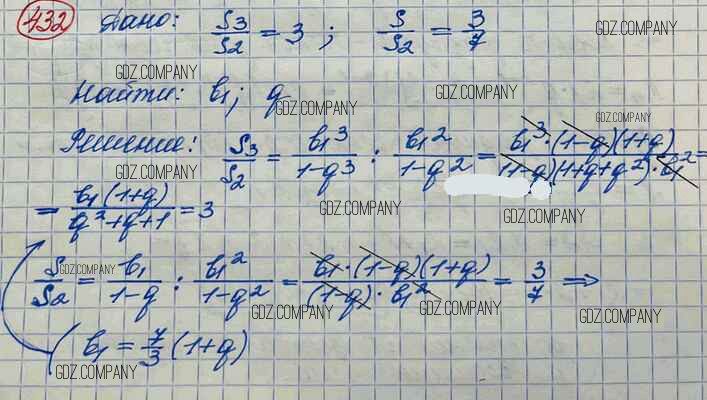 432 Дано: S3/S2 = 3 ; S/S2 = 3/7
GDZ.COMPANY
GDZ.COMPANY
Найти: b₁; q
GDZ.COMPANY
GDZ.COMPANY
GDZ.COMPANY
Решение: S3/S2 = b₁³/1-q³ : b₁²/1-q² = b₁³·(1-q)(1+q)/(1-q)(1+q+q²)·b₁² =
GDZ.COMPANY
= b₁(1+q)/q²+q+1 = 3
GDZ.COMPANY
GDZ.COMPANY
S/S2 = b₁/1-q : b₁²/1-q² = b₁·(1-q)(1+q)/(1-q)·b₁² = 3/7 ⇒
GDZ.COMPANY
GDZ.COMPANY
GDZ.COMPANY
GDZ.COMPANY
( b₁ = 7/3 (1+q)
GDZ.COMPANY